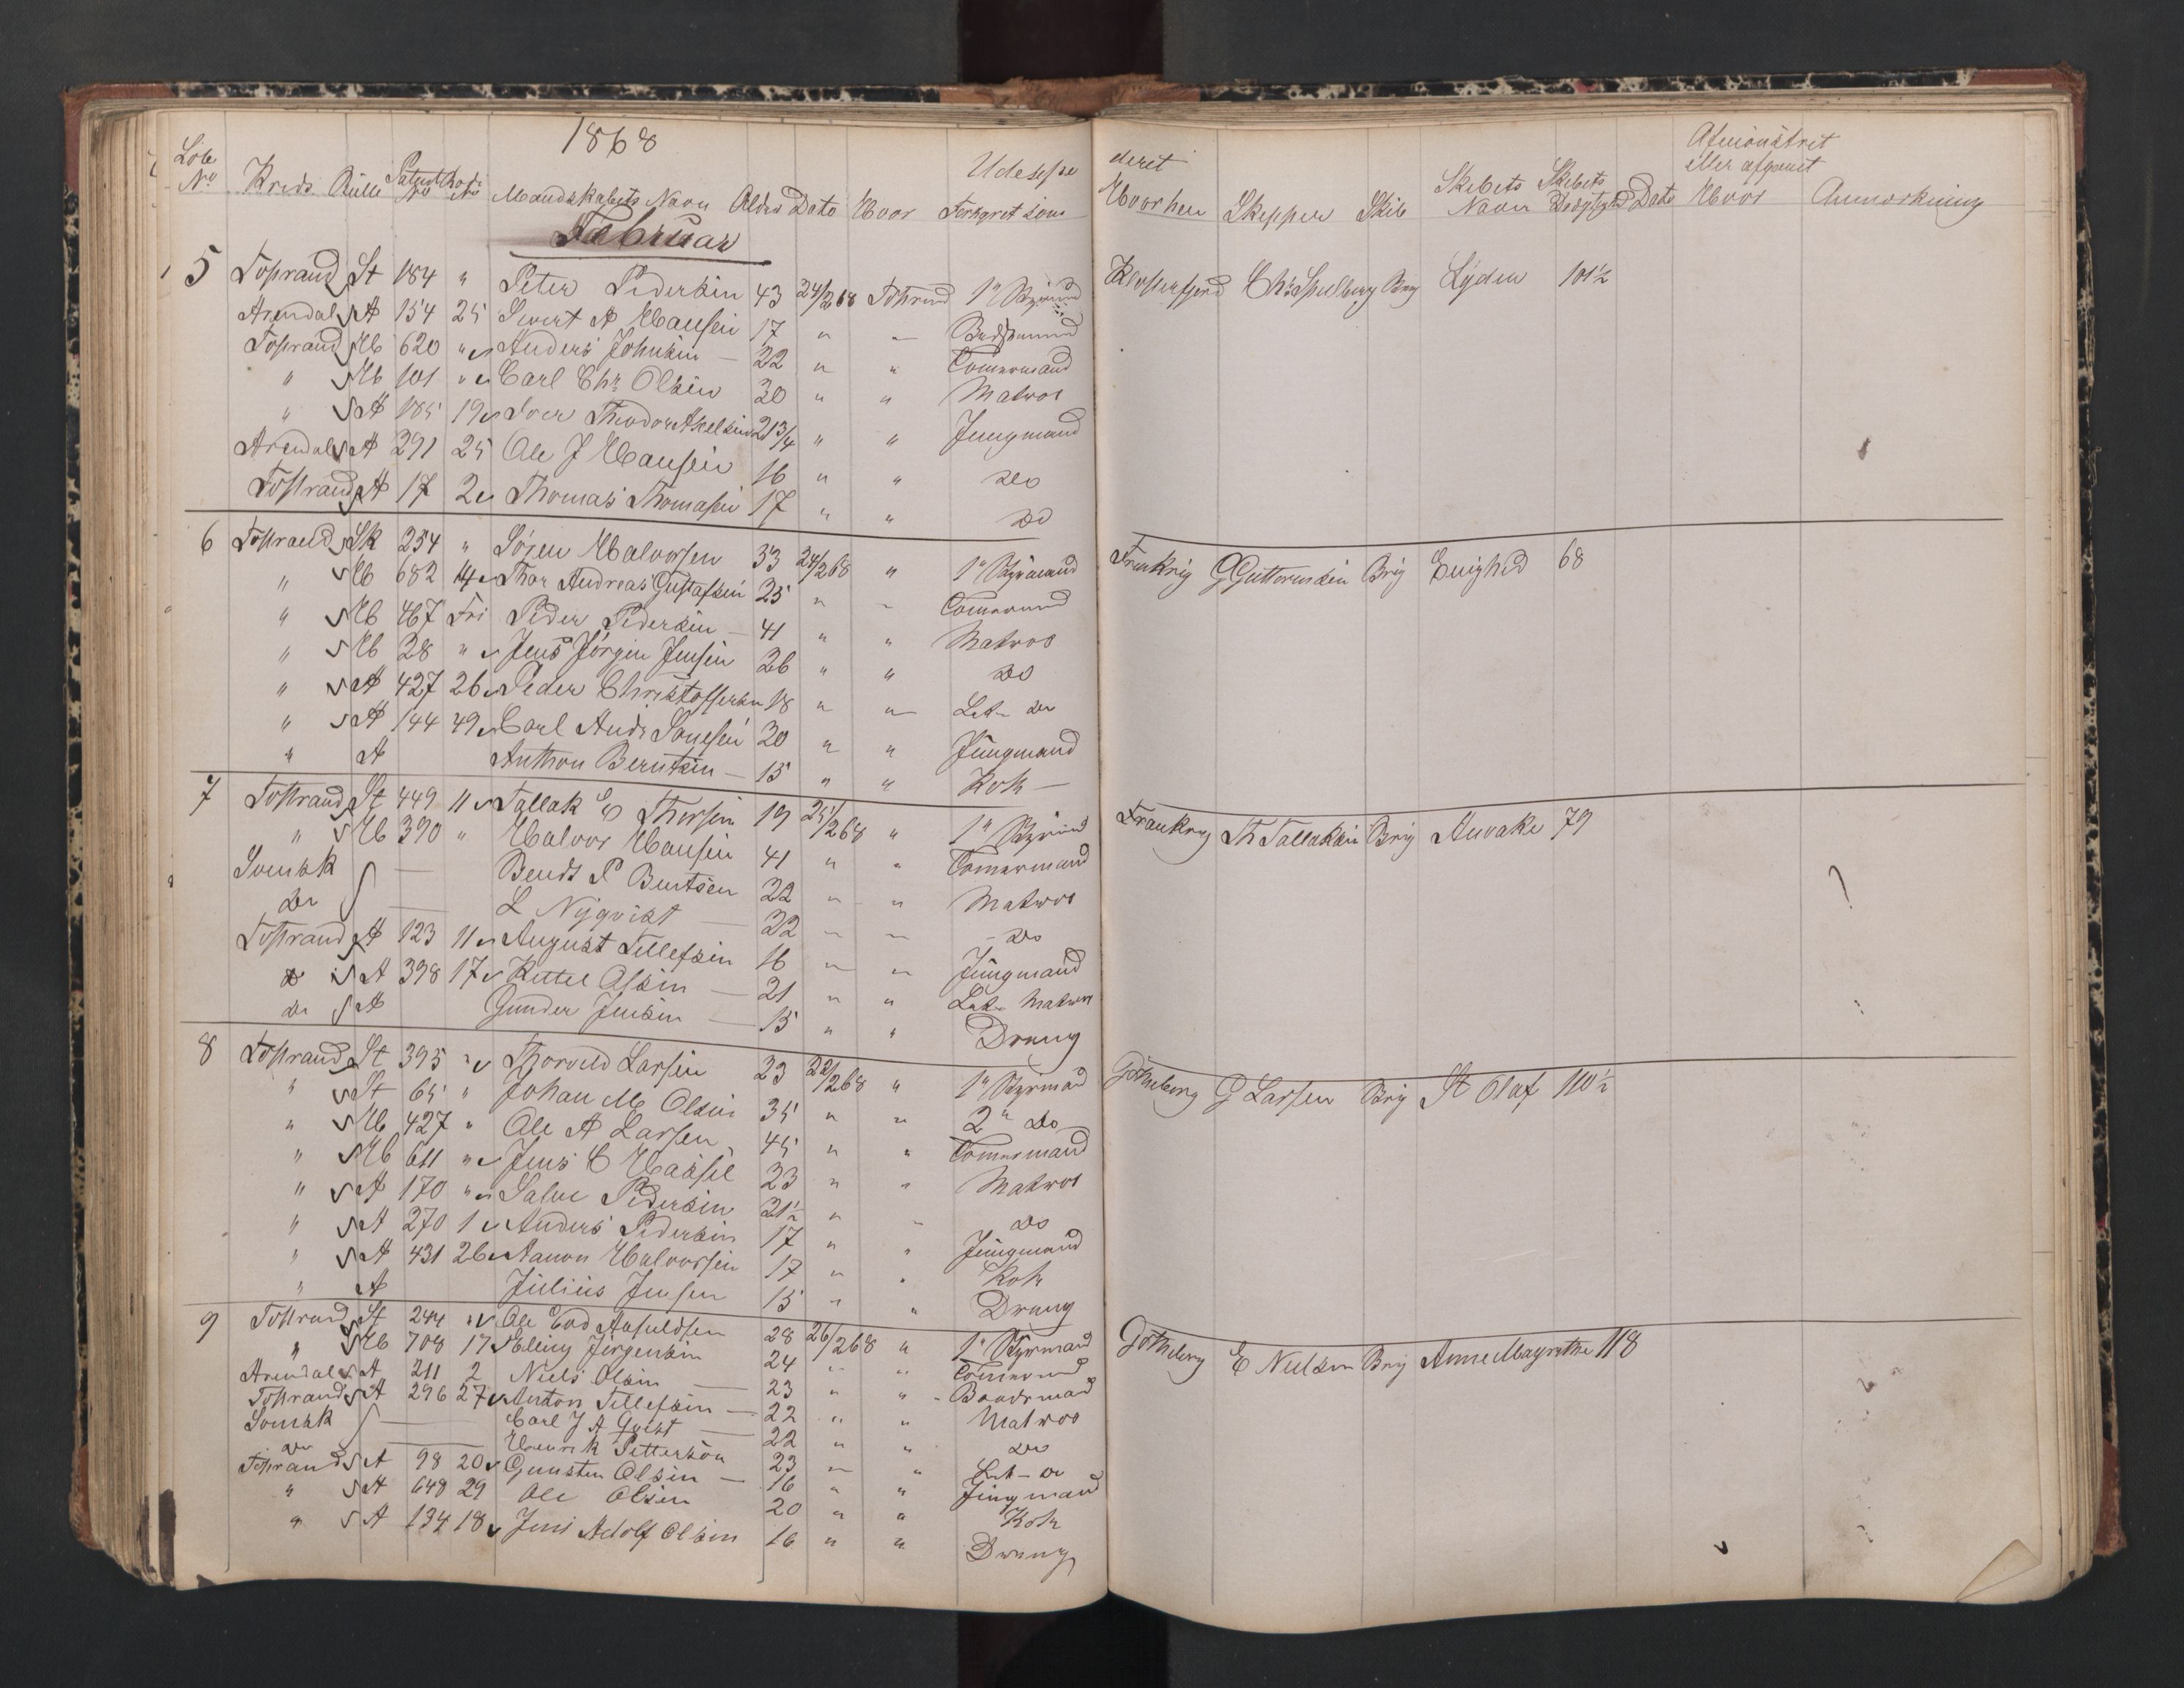 1868
Udexpe deret
Afmönstret
eller afgaaet
Löbe No Kreds Rulle Patent No Mandskabets Navn Alder Dato Hvor Forhyret som Hvorhen Skipper Skib Skibets Navn Skibets Drægtighed Dato Hvor Anmærkning
Februar
5 Tvestrand St 184 " Peter Pedersen 43 24/2 68 1n Styrmand Brig Lyden 101½
Arendal A 154 25 Hansen 17 " "
Tvestrand Hb 620 " Anders Johnsen 22 " " Tömermand
" Hb 101 " Carl Chr Olsen 30 " " Matros
" A 185 19 Theodor Axelsen 21 3/4 " " Jungmand
Arendal A 291 25 Ole J Hansen 16 " " do
Tvestrand A 17 2 Thomas Thomasen 17 " " do
6 Tvestrand Sk 254 " Sören Halvorsen 33 24/2 68 " 1n Styrmand Frankrig G Guttormsen Brig Enighed 68
" Hb 682 14 Thor Andreas Gustafsen 25 " " Tömermand
" Hb 467 Fri Peder Pedersen 41 " " Matros
" Hb 28 " Jens Jörgen Jensen 26 " " do
" A 427 26 Peder Christoffersen 18 " " Let do
" A 144 49 Carl Andr 20 " " Jungmand
" A Anthon Berntsen 15 " " Kok
7 Tvestrand St 449 11 Tallak E Thorsen 19 25/2 68 " 1n Styrmand Frankrig Th Tallaksen Brig 79
" Hb 390 " Halvor Hansen 41 " " Tömermand
Svensk Bendt P Bentsen 22 " " Matros
do L Nyqvist 32 " " do
Tvestrand A 123 11 August Tellefsen 16 " " Jungmand
do A 398 17 Kittel Olsen 21 " " Let Matros
do A Gunder Jensen 15 " " Dreng
8 Tvestrand St 395 " Thorvald Larsen 23 22/2 68 " 1n Styrmand Götheborg G Larsen Brig St Olaf 110½
" St 65 " Johan M Olsen 35 " " 2n do
" Hb 427 " Ole A Larsen 45 " " Tömermand
" Hb 611 " Jens C 23 " " Matros
" A 170 " Salve Pedersen 21½ " " do
" A 270 1 Anders Pedersen 17 " " Jungmand
" A 431 26 Aanon Halvorsen 17 " " Kok
" A Julius Jensen 15 " " Dreng
9 Tvestrand St 244 " Ole 28 26/2 68 " 1n Styrmand Götheborg E Nielsen Brig Anne Magrethe 118
" Hb 708 17 Elling Jörgensen 24 " " Tömermand
Arendal A 211 2 Niels Olsen 23 " " Baadsmand
Tvestrand A 296 27 Anton Tellefsen 22 " " Matros
Svensk Carl J A Qvist 22 " " do
do Henrik Petterson 23 " " Let do
Tvestrand A 98 20 Gunsten Olsen 16 " " Jungmand
" A 648 29 Ole Olsen 20 " " Kok
" A 134 18 Jens Adolf Olsen 16 " " Dreng